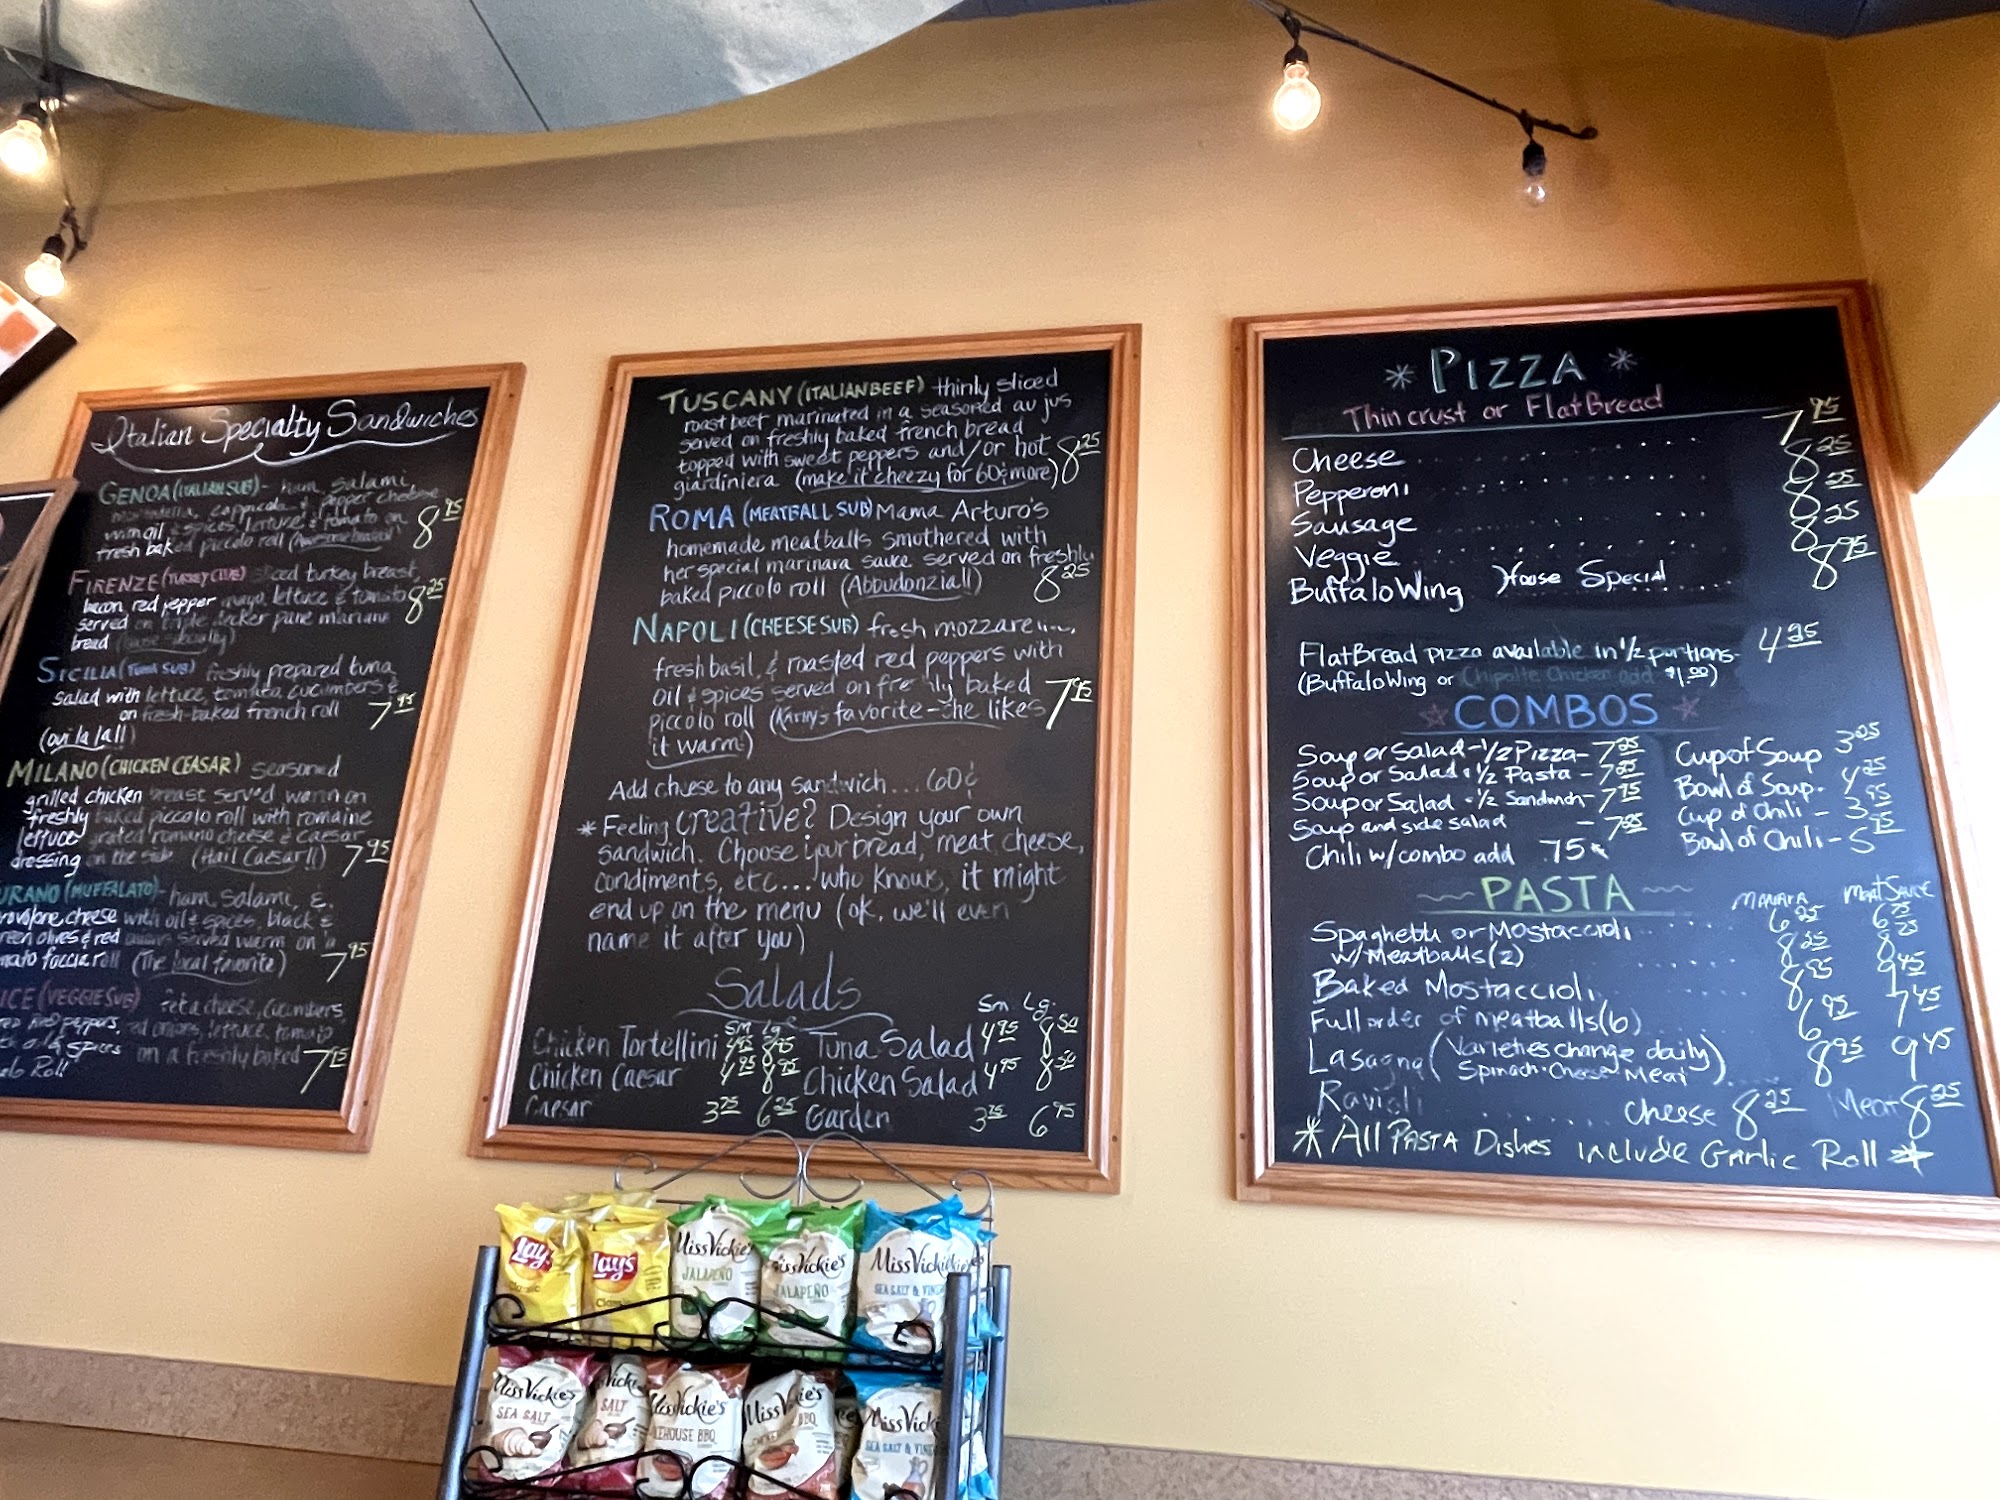 Italian Specialty Sandwiches
GENOA (ITALIAN SUB) - ham, salami,
mortadella, cappicola & pepper cheese
w/ oil & spices, lettuce & tomato on
fresh baked piccolo roll 8.95
FIRENZE (TURKEY CLUB) sliced turkey breast,
bacon, red pepper mayo, lettuce & tomato
served on triple decker pane mariano 8.25
bread
SICILIA (TUNA SUB) freshly prepared tuna
salad with lettuce, tomato, cucumbers &
on fresh-baked french roll 7.95
(oui la la!!)
MILANO (CHICKEN CEASAR) seasoned
grilled chicken breast served warm on
freshly baked piccolo roll with romaine
lettuce grated romano cheese & caesar
dressing on the side (Hail Caesar!!) 7.95
URANO (MUFFALATO) - ham, salami, &
rovolone cheese with oil & spices, black &
reen olives & red onions served warm on a
mato foccia roll (The local favorite) 7.95
ICE (VEGGIE SUB) feta cheese, cucumbers,
red peppers, red onions, lettuce, tomato
oil & spices on a freshly baked 7.95
Roll
TUSCANY (ITALIAN BEEF) thinly sliced
roast beef marinated in a seasoned au jus
served on freshly baked french bread
topped with sweet peppers and/or hot
giardiniera (make it cheezy for 60¢ more) 8.25
ROMA (MEATBALL SUB) Mama Arturo's
homemade meatballs smothered with
her special marinara sauce served on freshly
baked piccolo roll (Abbudonzia!!) 8.25
NAPOLI (CHEESE SUB) fresh mozzare
fresh basil, & roasted red peppers with
oil & spices served on fre hly baked
piccolo roll (Kathy's favorite - she likes 7.95
it warm!)
Add cheese to any sandwich... 60¢
* Feeling creative? Design your own
sandwich. Choose your bread, meat, cheese,
condiments, etc... who knows, it might
end up on the menu (ok, we'll even
name it after you)
Salads
Sm. Lg. Sm. Lg.
Chicken Tortellini 4.95 8.95 Tuna Salad 4.95 8.50
Chicken Caesar 4.95 8.95 Chicken Salad 4.95 8.50
Caesar 3.75 6.25 Garden 3.75 6.95
* PIZZA *
Thin crust or FlatBread
Cheese 7.95
Pepperoni 8.25
Sausage 8.25
Veggie 8.25
Buffalo Wing House Special 8.95
FlatBread pizza available in 1/2 portions - 4.95
(Buffalo Wing or Chipotle Chicken add $1.00)
COMBOS
Soup or Salad - 1/2 Pizza - 7.25 Cup of Soup 3.05
Soup or Salad & 1/2 Pasta - 7.25 Bowl of Soup. 4.25
Soup or Salad - 1/2 Sandwich - 7.75 Cup of Chili - 3.95
Soup and side salad - 7.25 Bowl of Chili - 5.95
Chili w/ combo add .75
PASTA
MARINARA MEAT SAUCE
Spaghetti or Mostaccioli 6.25 6.75
w/ Meatballs (2) 8.25 8.75
Baked Mostaccioli 8.95 9.45
Full order of meatballs (6) 6.95 7.45
Lasagna (Varieties change daily) 8.95 9.45
Spinach - Cheese - Meat
Ravioli cheese 8.25 Meat 8.25
* All PASTA Dishes include Garlic Roll *
Lay's
Classic
Lay's
Miss Vickie's
JALAPEÑO
Miss Vickie's
JALAPEÑO
Miss Vickie's
SEA SALT & VINE
Miss Vickie's
SEA SALT
SALT
Miss Vickie's
EHOUSE BBQ
Miss Vickie's
BBQ
Miss Vick
SEA SALT & VINE